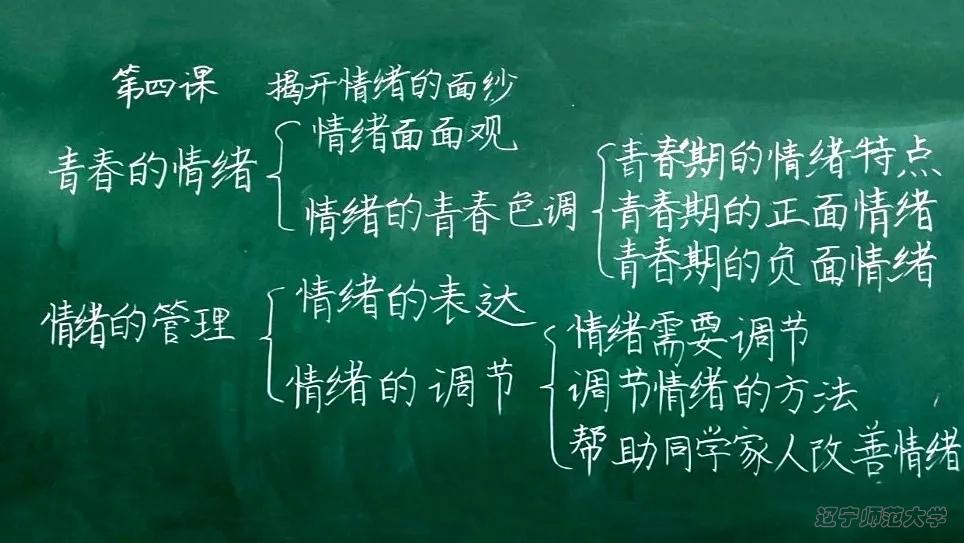 第四课 揭开情绪的面纱
青春的情绪
情绪面面观
情绪的青春色调
青春期的情绪特点
青春期的正面情绪
青春期的负面情绪
情绪的管理
情绪的表达
情绪的调节
情绪需要调节
调节情绪的方法
帮助同学家人改善情绪
辽宁师范大学